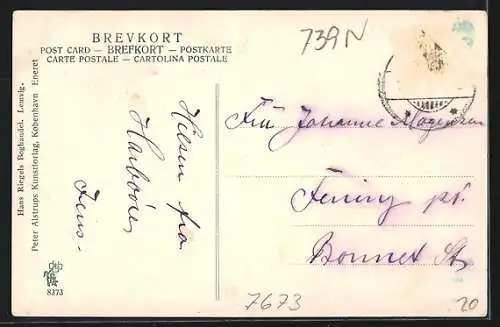 BREVKORT
POST CARD — BREFKORT — POSTKARTE
CARTE POSTALE — CARTOLINA POSTALE
739N
Hans Riegels Boghandel. Lemvig.
Peter Alstrups Kunstforlag, København Eneret
Hilsen fra
Harboöre
Jens-
Frü Johanne Mogensen
Fening pr.
Bonnet St,
8373
7673
20